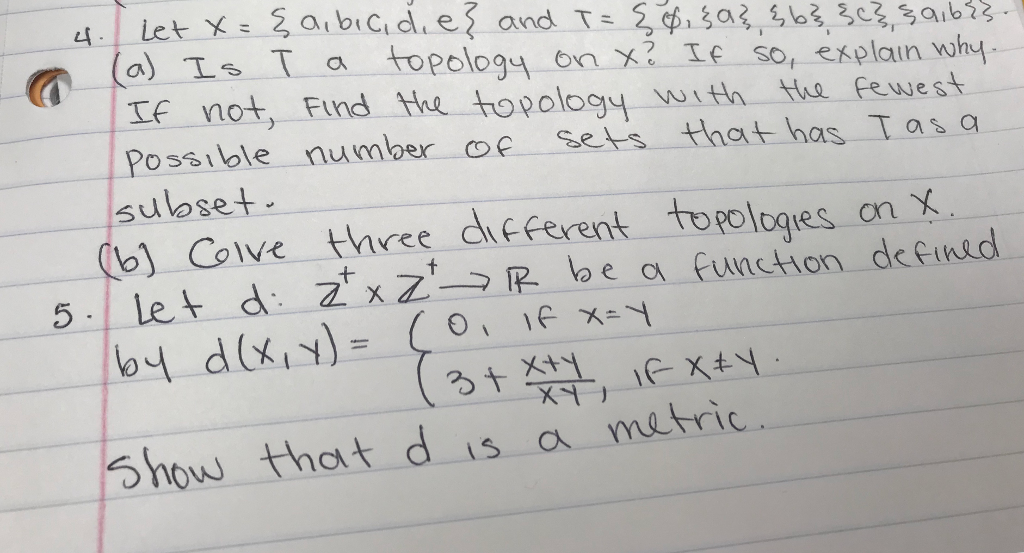 4. Let X = {a,b,c,d,e} and T = {∅, {a}, {b}, {c}, {a,b}}.
(a) Is T a topology on X? If so, explain why.
If not, Find the topology with the fewest
possible number of sets that has T as a
subset.
(b) Give three different topologies on X.
5. Let d: Z⁺ x Z⁺ → ℝ be a function defined
by d(x,y) = { 0, if x=y
3 + x+y/xy, if x≠y.
Show that d is a metric.